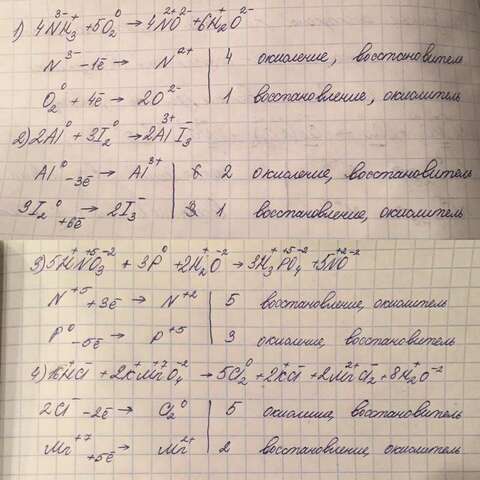 1) 4N³⁻H₃⁺ + 5O₂⁰ → 4N²⁺O²⁻ + 6H₂⁺O²⁻
N³⁻ -1ē → N²⁺ | 4 окисление, восстановитель
O₂⁰ + 4ē → 2O²⁻ | 1 восстановление, окислитель
2) 2Al⁰ + 3I₂⁰ → 2Al³⁺I₃⁻
Al⁰ -3ē → Al³⁺ | 2 окисление, восстановитель
3I₂⁰ +6ē → 2I₃⁻ | 1 восстановление, окислитель
3) 5H⁺N⁺⁵O₃⁻² + 3P⁰ + 2H₂⁺O⁻² → 3H₃⁺P⁺⁵O₄⁻² + 5N⁺²O⁻²
N⁺⁵ +3ē → N⁺² | 5 восстановление, окислитель
P⁰ -5ē → P⁺⁵ | 3 окисление, восстановитель
4) 16H⁺Cl⁻ + 2K⁺Mn⁺⁷O₄⁻² → 5Cl₂⁰ + 2K⁺Cl⁻ + 2Mn²⁺Cl₂⁻ + 8H₂⁺O⁻²
2Cl⁻ -2ē → Cl₂⁰ | 5 окислиша, восстановитель
Mn⁺⁷ +5ē → Mn²⁺ | 2 восстановление, окислитель